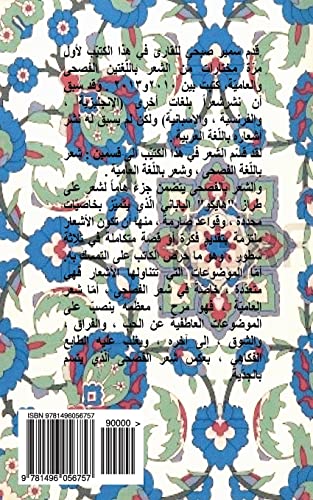 قدم سمير صبحي للقارئ في هذا الكتيب لأول
مرة مختارات من الشعر باللغتين الفصحى
والعامية، كتبت بين ٢٠١٠ و٢٠١٣. وقد سبق
أن نشر شعر بلغات أخرى (الإنجليزية،
والفرنسية، والإسبانية) ولكن لم يسبق له نشر
أشعاره باللغة العربية.
لقد قسم الشعر في هذا الكتيب الى قسمين: شعر
باللغة الفصحى، وشعر باللغة العامية.
والشعر بالفصحى يتضمن جزءً هاماً لشعر على
طراز "هايكو" الياباني الذي يتميز بخاصيات
محددة، وقواعد صارمة، منها أن تكون الأشعار
ملتزمة بتقديم فكرة أو قصة متكاملة في ثلاثة
سطور، وهو ما حرص الكاتب على التمسك به.
أما الموضوعات التي تتناولها الأشعار فهى
متعددة، خاصة في شعر الفصحى، أما شعر
العامية، فهو مرح، معظمه ينصب على
الموضوعات العاطفية عن الحب، والفراق،
والشوق، إلى آخره، ويغلب عليه الطابع
الفكاهي، بعكس شعر الفصحى الذي يتسم
بالجدية.
ISBN 9781496056757
90000 >
9 781496 056757